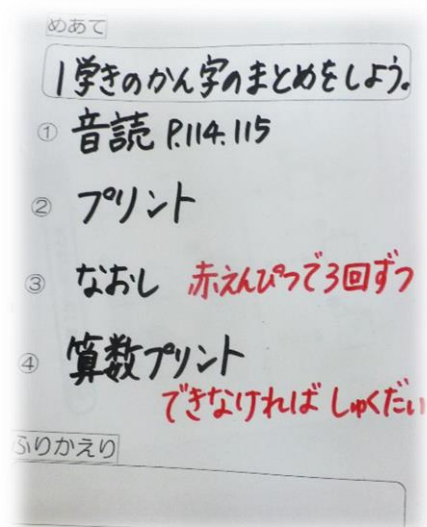 めあて
1学きのかん字のまとめをしよう。
① 音読 P.114.115
② プリント
③ なおし 赤えんぴつで3回ずつ
④ 算数プリント
できなければ しゅくだい
ふりかえり